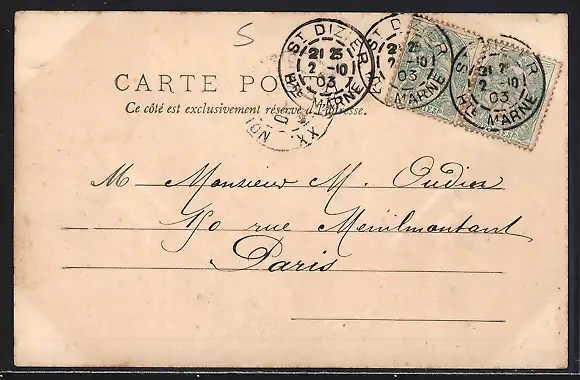 5
ST DIZIER
21 25
2 -10
03
HTE MARNE
ST DIZIER
21 25
2 -10
03
HTE MARNE
21
2 -10
03
HTE MARNE
CARTE PO
Ce côté est exclusivement réservé à l'adresse.
XX
M Monsieur M. Oudin
150 rue Ménilmontant
Paris